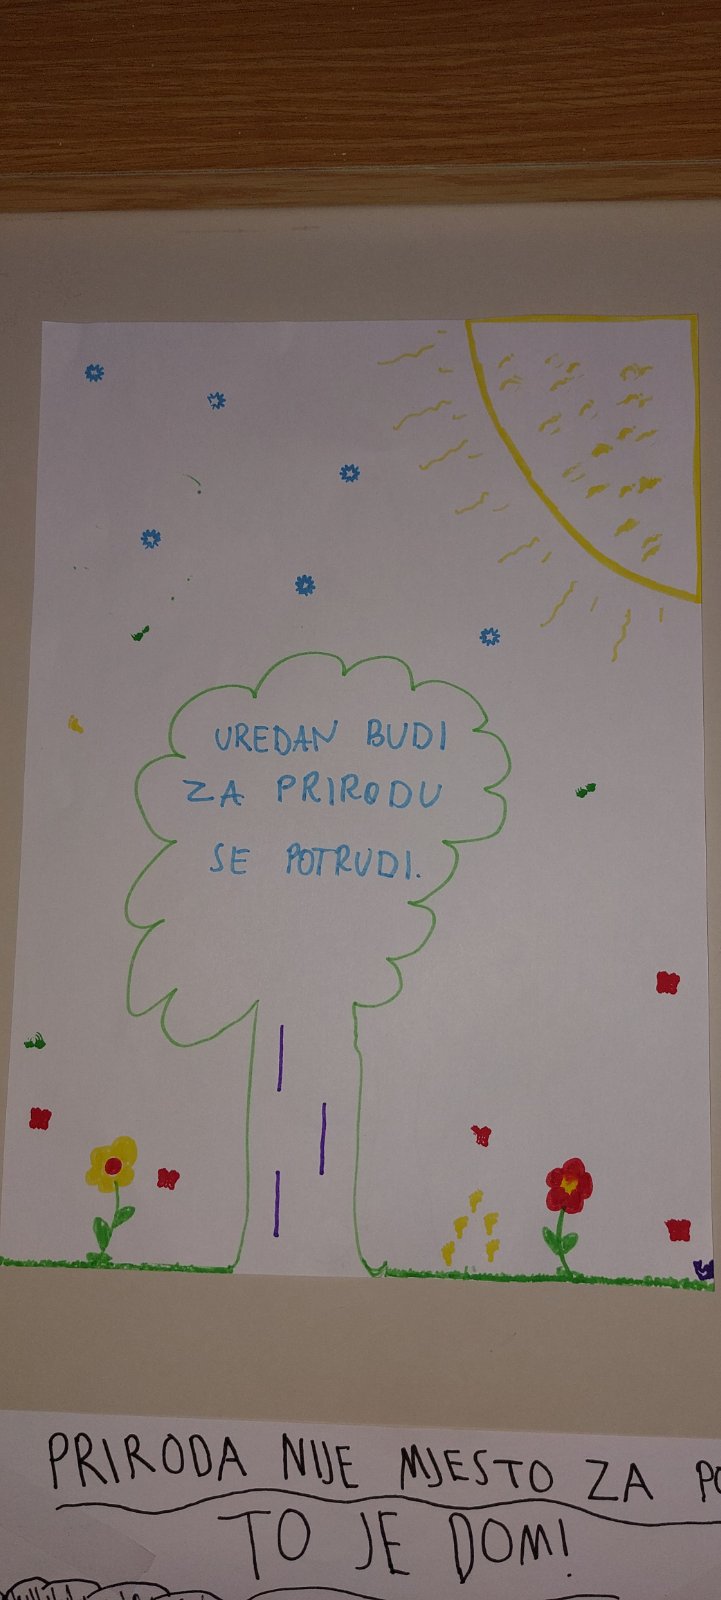 UREDAN BUDI
ZA PRIRODU
SE POTRUDI.
PRIRODA NIJE MJESTO ZA
TO JE DOM!